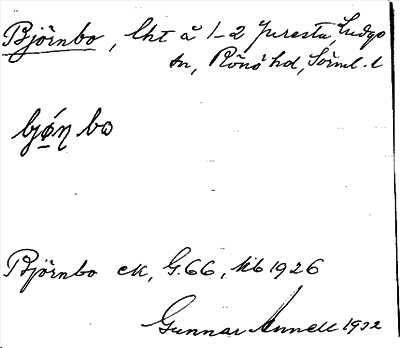 Björnbo, lht å 1-2 Juresta, Ludgo
sn, Rönö hd, Sörml. l
bjǿƞ bo
Björnbo ek, G.66, kb 1926
Gunnar Annell 1932